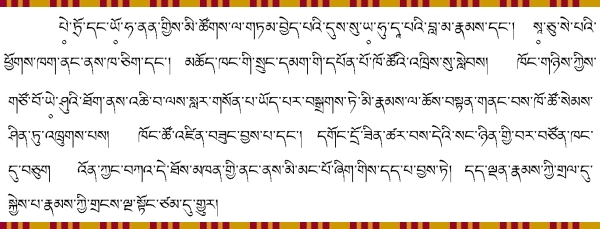 པེ་ཏྲོ་དང་ཡོ༹་ཧ་ནན་གྱིས་མི་ཚོགས་ལ་གཏམ་བྱེད་པའི་དུས་སུ་ཡ༹་ཧུ་དཱ་པའི་བླ་མ་རྣམས་དང་། སཱ༹་ཅུ་སེ་པའི་
ཕྱོགས་ཁག་ནང་ནས་ཁ་ཅིག་དང་། མཆོད་ཁང་གི་སྲུང་དམག་གི་དཔོན་པོ་ཁོ་ཚོའི་འཁྲིས་སུ་སླེབས། ཁོང་གཉིས་ཀྱིས་
གཙོ་བོ་ཡེ༹་ཤུའི་ཐོག་ནས་འཆི་བ་ལས་སླར་གསོན་པ་ཡོད་པར་བསྒྲགས་ཏེ་མི་རྣམས་ལ་ཆོས་བསྟན་གནང་བས་ཁོ་ཚོ་སེམས་
ཤིན་ཏུ་འཁྲུགས་པས། ཁོང་ཚོ་འཛིན་བཟུང་བྱས་པ་དང་། དགོང་དྲོ་ཟིན་ཚར་བས་དེའི་སང་ཉིན་གྱི་བར་བཙོན་ཁང་
དུ་བཅུག འོན་ཀྱང་བཀའ་དེ་ཐོས་མཁན་གྱི་ནང་ནས་མི་མང་པོ་ཞིག་གིས་དད་པ་བྱས་ཏེ། དད་ལྡན་རྣམས་ཀྱི་གྲལ་དུ་
སྐྱེས་པ་རྣམས་ཀྱི་གྲངས་ལྔ་སྟོང་ཙམ་དུ་གྱུར།